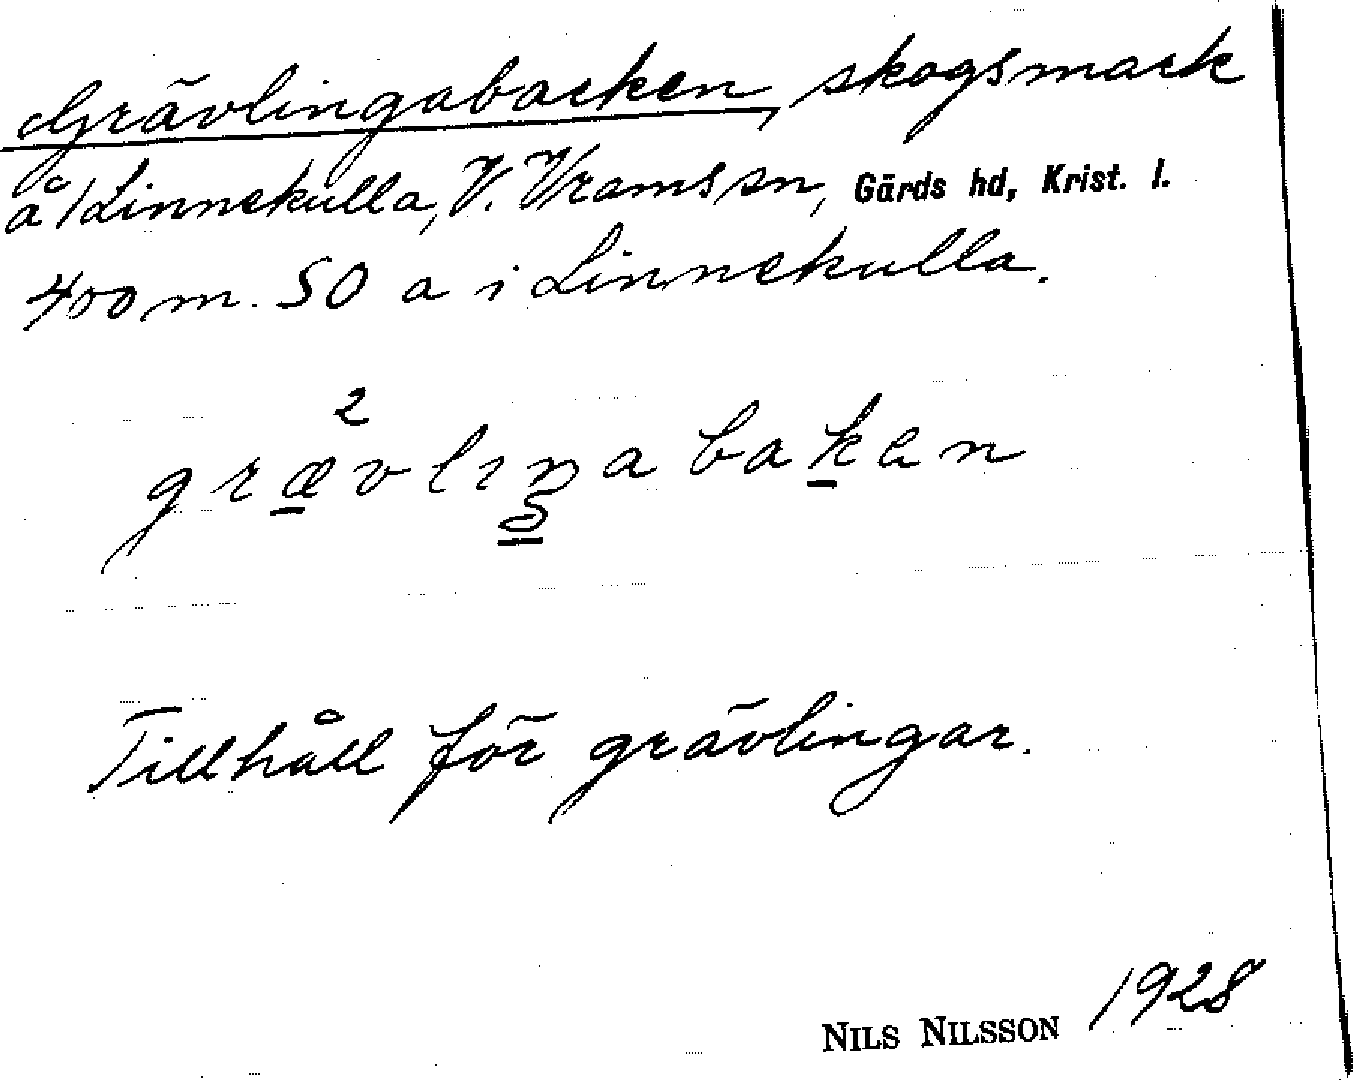 Grävlingabacken, skogsmark
å Linnekulla, V. Vrams sn, Gärds hd, Krist. l.
400 m. SO a i Linnekulla.
2
grævlıŋa bakan
Tillhåll för grävlingar.
NILS NILSSON 1928